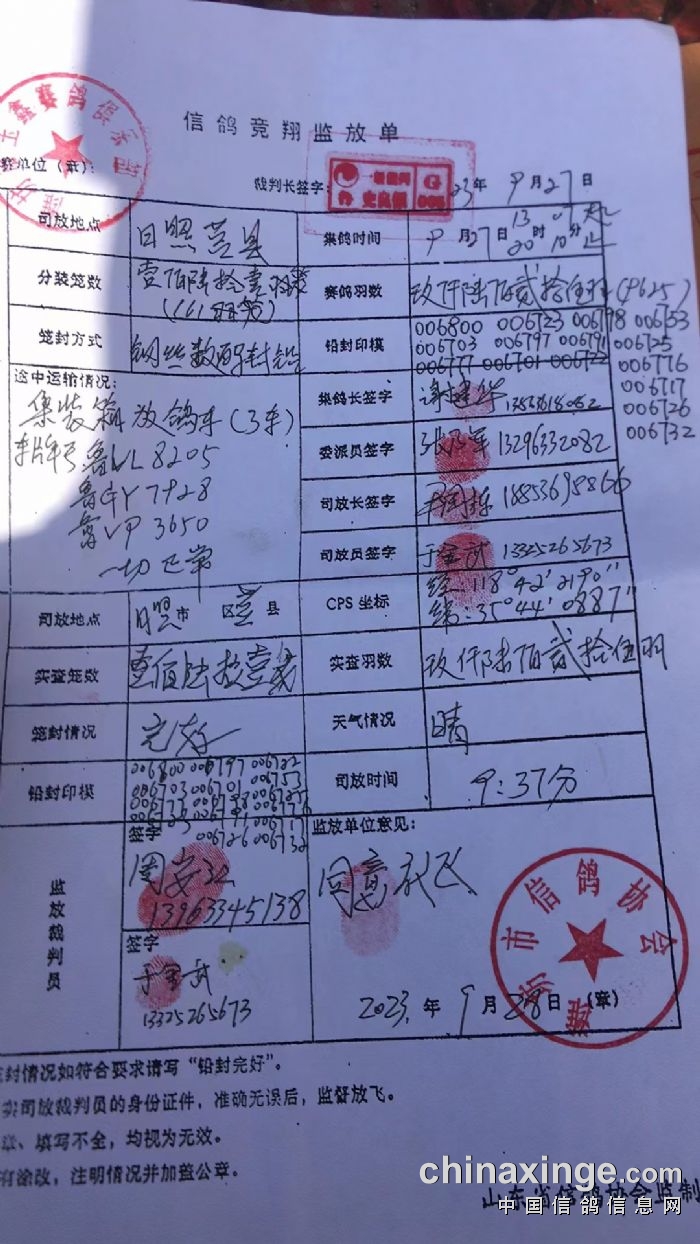 鑫赛鸽俱乐部
信鸽竞翔监放单
赛单位（章）：
裁判长签字：
23年 9月27日
司放地点
日照莒县
集鸽时间
9月27日
13 07起
20时10分止
分装笼数
壹佰陆拾壹羽笼
赛鸽羽数
玖仟陆佰贰拾伍羽(9625)
笼封方式
钢丝数码封铅
铅封印模
006800 006723 006798 006753
006703 006797 006791 006725
006777 006701 006722 006776
006717
006726
006732
途中运输情况：
集装箱放鸽车(3车)
车牌号 鲁VL8205
7928
鲁VP3650
一切正常
集鸽长签字
委派员签字
13296332082
司放长签字
18853698866
司放员签字
于宝武 13325265673
司放地点
日照市 区莒县
CPS 坐标
经:118°42′2190″
纬:35°44′0887″
实查笼数
壹佰陆拾壹笼
实查羽数
玖仟陆佰贰拾伍羽
笼封情况
完好
天气情况
晴
铅封印模
006800 006797 006722
006703 006701 006753
司放时间
9:37分
006726 006732
监放裁判员
签字
13963345138
签字
于宝武
13325265673
监放单位意见：
同意放飞
2023年 9月28日（章）
潍坊市信鸽协会
封情况如符合要求请写“铅封完好”。
实司放裁判员的身份证件，准确无误后，监督放飞。
章、填写不全，均视为无效。
有涂改，注明情况并加盖公章。
山东省信鸽协会监制
chinaxinge.com
中国信鸽信息网